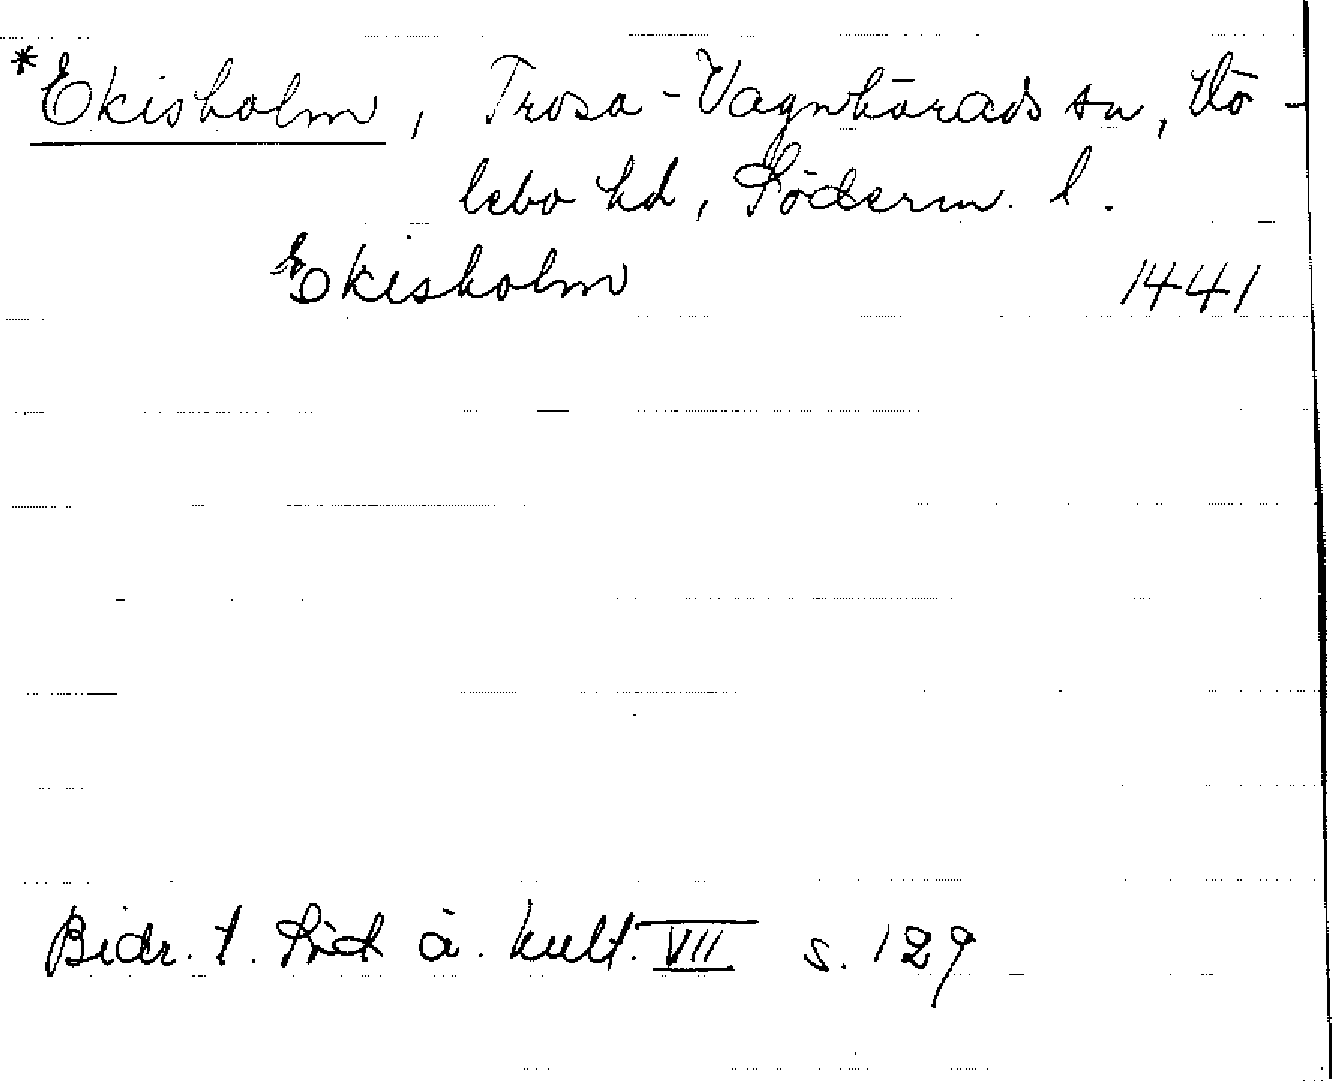 *Ekisholm, Trosa-Vagnhärads sn, Hö-
lebo hd, Söderm. l.
Ekisholm 1441
Bidr. t. Söd ä. kult. VII s. 129